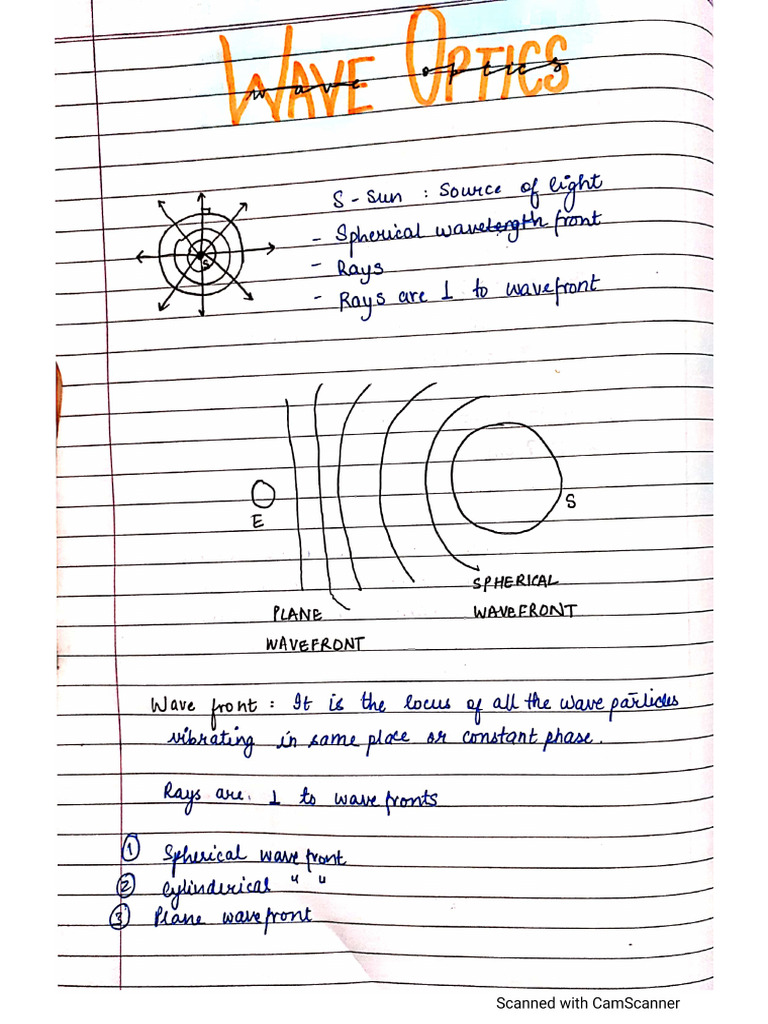 WAVE OPTICS
wave optics
S - Sun : Source of light
- Spherical wavelength front
- Rays
- Rays are ⊥ to wavefront
S
E
S
SPHERICAL
WAVEFRONT
PLANE
WAVEFRONT
Wave front : It is the locus of all the wave particles
vibrating in same place or constant phase.
Rays are. ⊥ to wave fronts
① Spherical wave front
② Cylinderical " "
③ Plane wavefront
Scanned with CamScanner